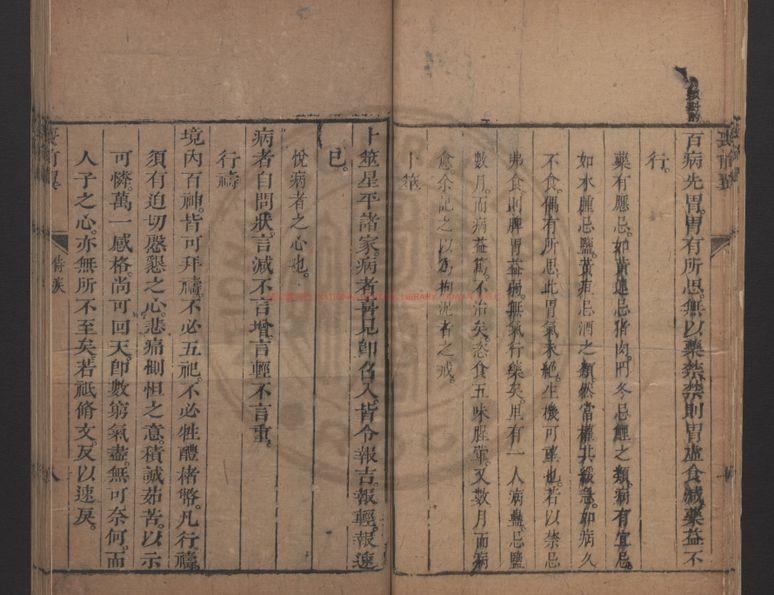 百病先胃。胃有所思。無以藥禁。禁則胃虛食減。藥益不
行。
藥有應忌。如黃連忌猪肉。門冬忌鯉之類。病有宜忌。
如水腫忌鹽。黃疸忌酒之類。然當權其緩急。如病久
不食。偶有所思。此胃氣未絕。生機可藥也。若以禁忌
弗食。則脾胃益弱。無氣行藥矣。且有一人病蠱。忌鹽
數月。而病益篤。不治矣。恣食五味腥葷。又數月而病
愈。余記之以為拘泥者之戒。
卜筮
卜筮星平諸家。病者喜見。即召入。皆令報吉。報輕。報速
已。
悅病者之心也。
病者自問狀。言減不言增。言輕不言重。
行禱
境內百神。皆可拜禱。不必五祀。不必牲醴楮幣。凡行禱。
須有迫切懇懇之心。悲痛惻怛之意。積誠茹苦。以示
可憐。萬一感格。尚可回天。即數窮氣盡。無可奈何。而
人子之心。亦無所不至矣。若祇脩文。反以速戾。
侍疾
八